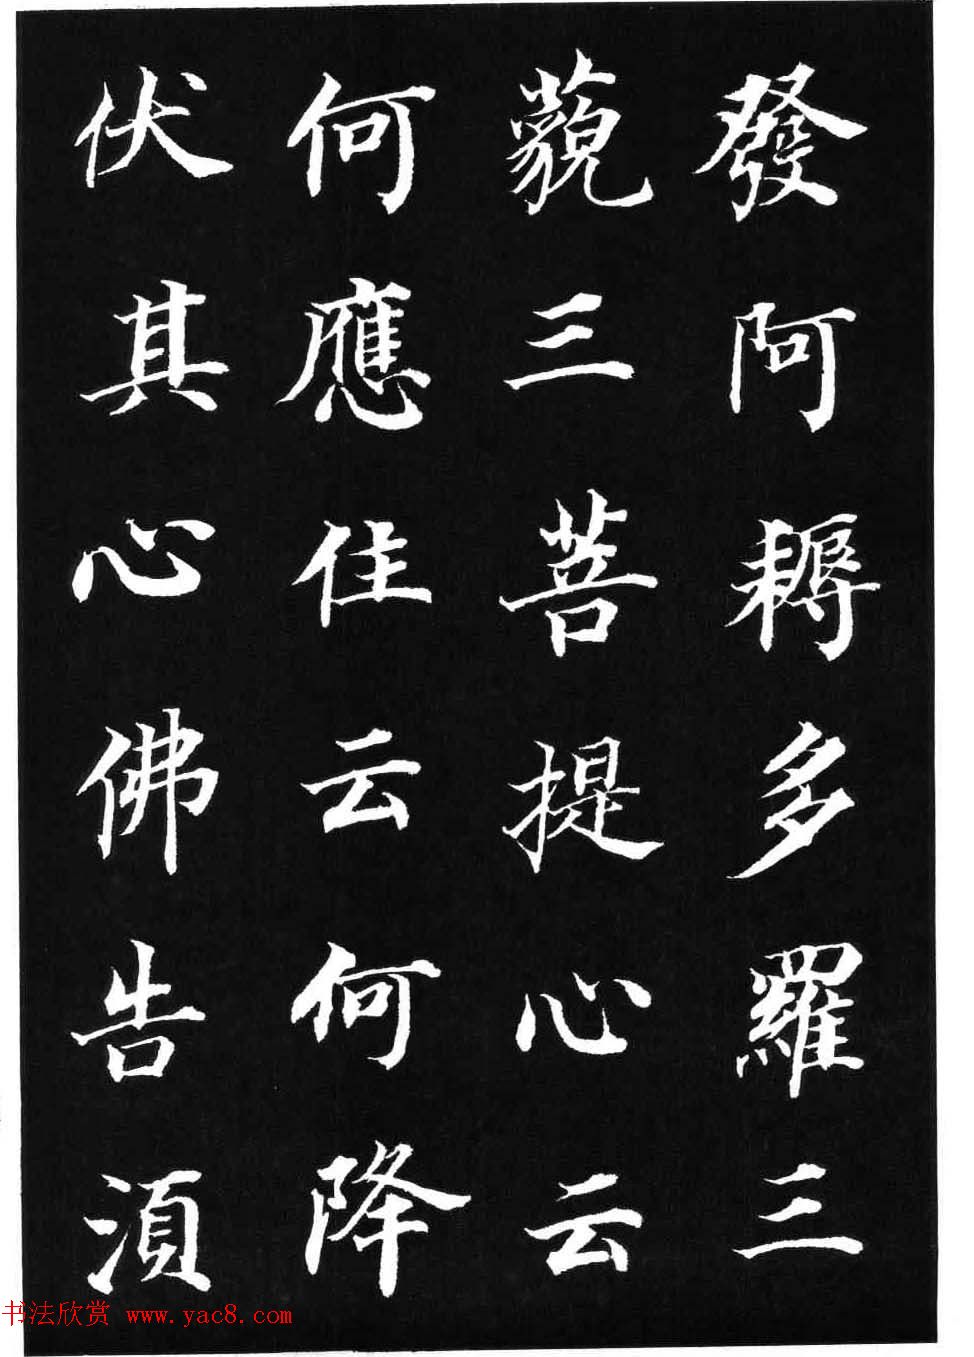 發阿耨多羅三
藐三菩提心云
何應住云何降
伏其心佛告湏
书法欣赏 www.yac8.com